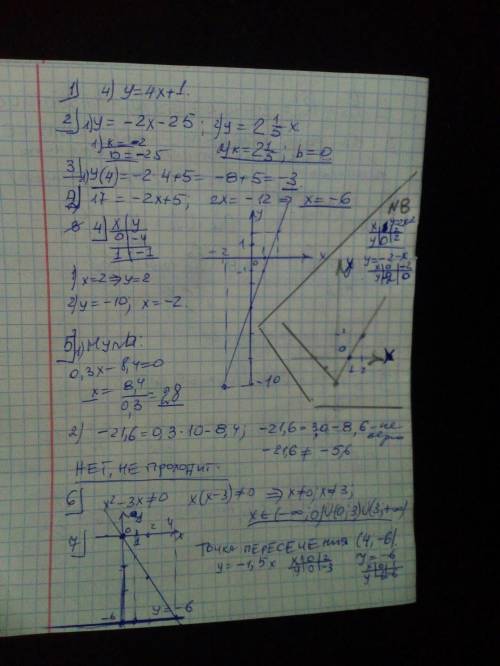 1) 4) y=4x+1.
2) 1) y = -2x-25; 2) y = 2 1/5 x
1) k=-2 2) k=2 1/5; b=0
b=-25
3) 1) y(4)=-2·4+5=-8+5=-3
2) 17 = -2x+5; 2x=-12 ⇒ x=-6
4) x y
0 -4
1 -1
1) x=2 ⇒ y=2
2) y=-10; x=-2
y
-2 0 1 x
-1
-10
N8
y=-2-x
y
1
0
1 2 x
5) 1) Нули:
0,3x-8,4=0
x = 8,4/0,3 = 28
2) -21,6=0,3·10-8,4; -21,6=3,0-8,6 - не верно
-21,6≠-5,6
НЕТ, не проходит.
6) x²-3x≠0 x(x-3)≠0 ⇒ x≠0; x≠3;
x∈(-∞;0)∪(0;3)∪(3;+∞)
7) y
0 1 2 4 x
-6 y=-6
Точка пересечения (4,-6)
y=-1,5x x 0 2 y=-6
y 0 -3